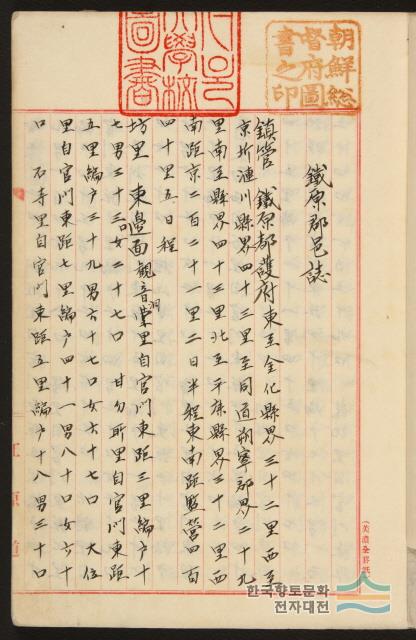 朝鮮総
督府圖
書之印
鐵原郡邑誌
鎮管 鐵原都護府東至金化縣界三十二里西至
京折漣川縣界四十三里至同道朔寧郡界二十九
里南至縣界四十三里北至平康縣界三十二里西
南距京二百二十里二日半程東南距監營四百
四十里五日程
坊里 東邉面觀音洞里自官門東距三里編户十
七男三十三口女二十七口 甘勿所里自官門東距
五里編户三十九男六十七口女六十七口 大位
里自官門東距七里編户四十一男八十口女六十
口 石寺里自官門東距五里編户十八男三十口
江原道
한국향토문화
전자대전